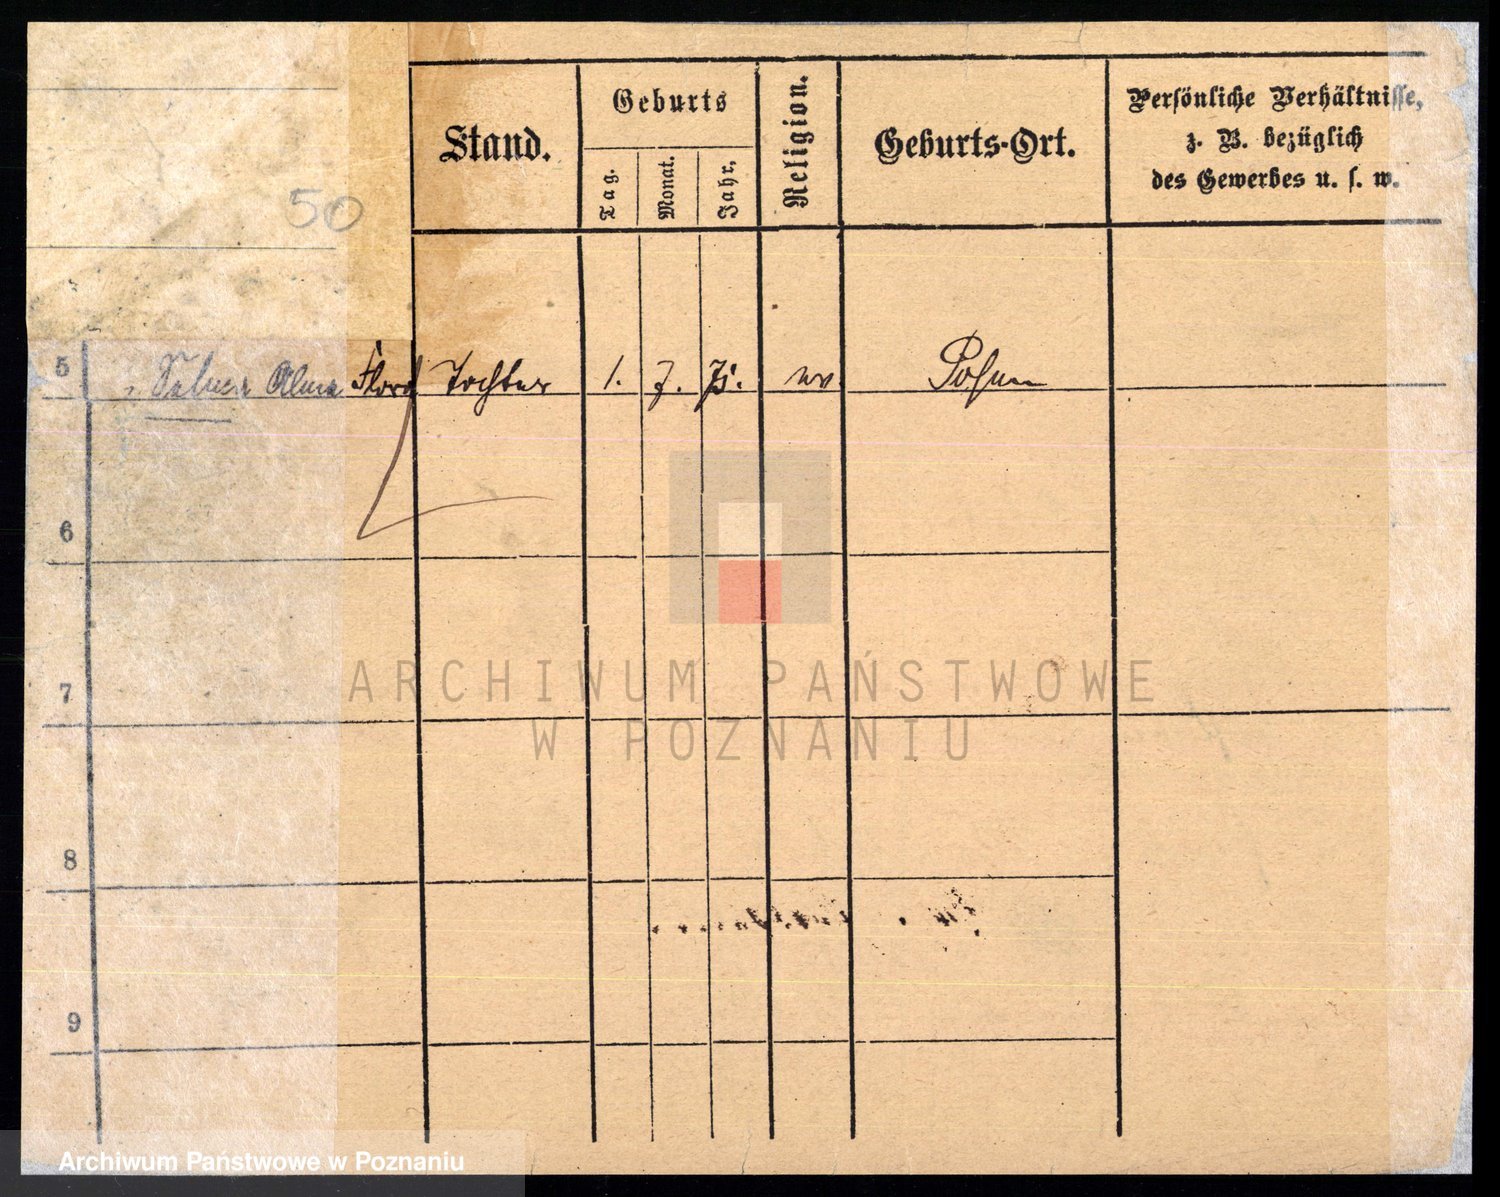 Stand.
Geburts
Tag.
Monat.
Jahr.
Religion.
Geburts-Ort.
Persönliche Verhältnisse,
z. B. bezüglich
des Gewerbes u. s. w.
50
5 Alma Flora Tochter 1. 7. 75. ev Posen
6
7
8
9
ARCHIWUM PAŃSTWOWE
W POZNANIU
Archiwum Państwowe w Poznaniu